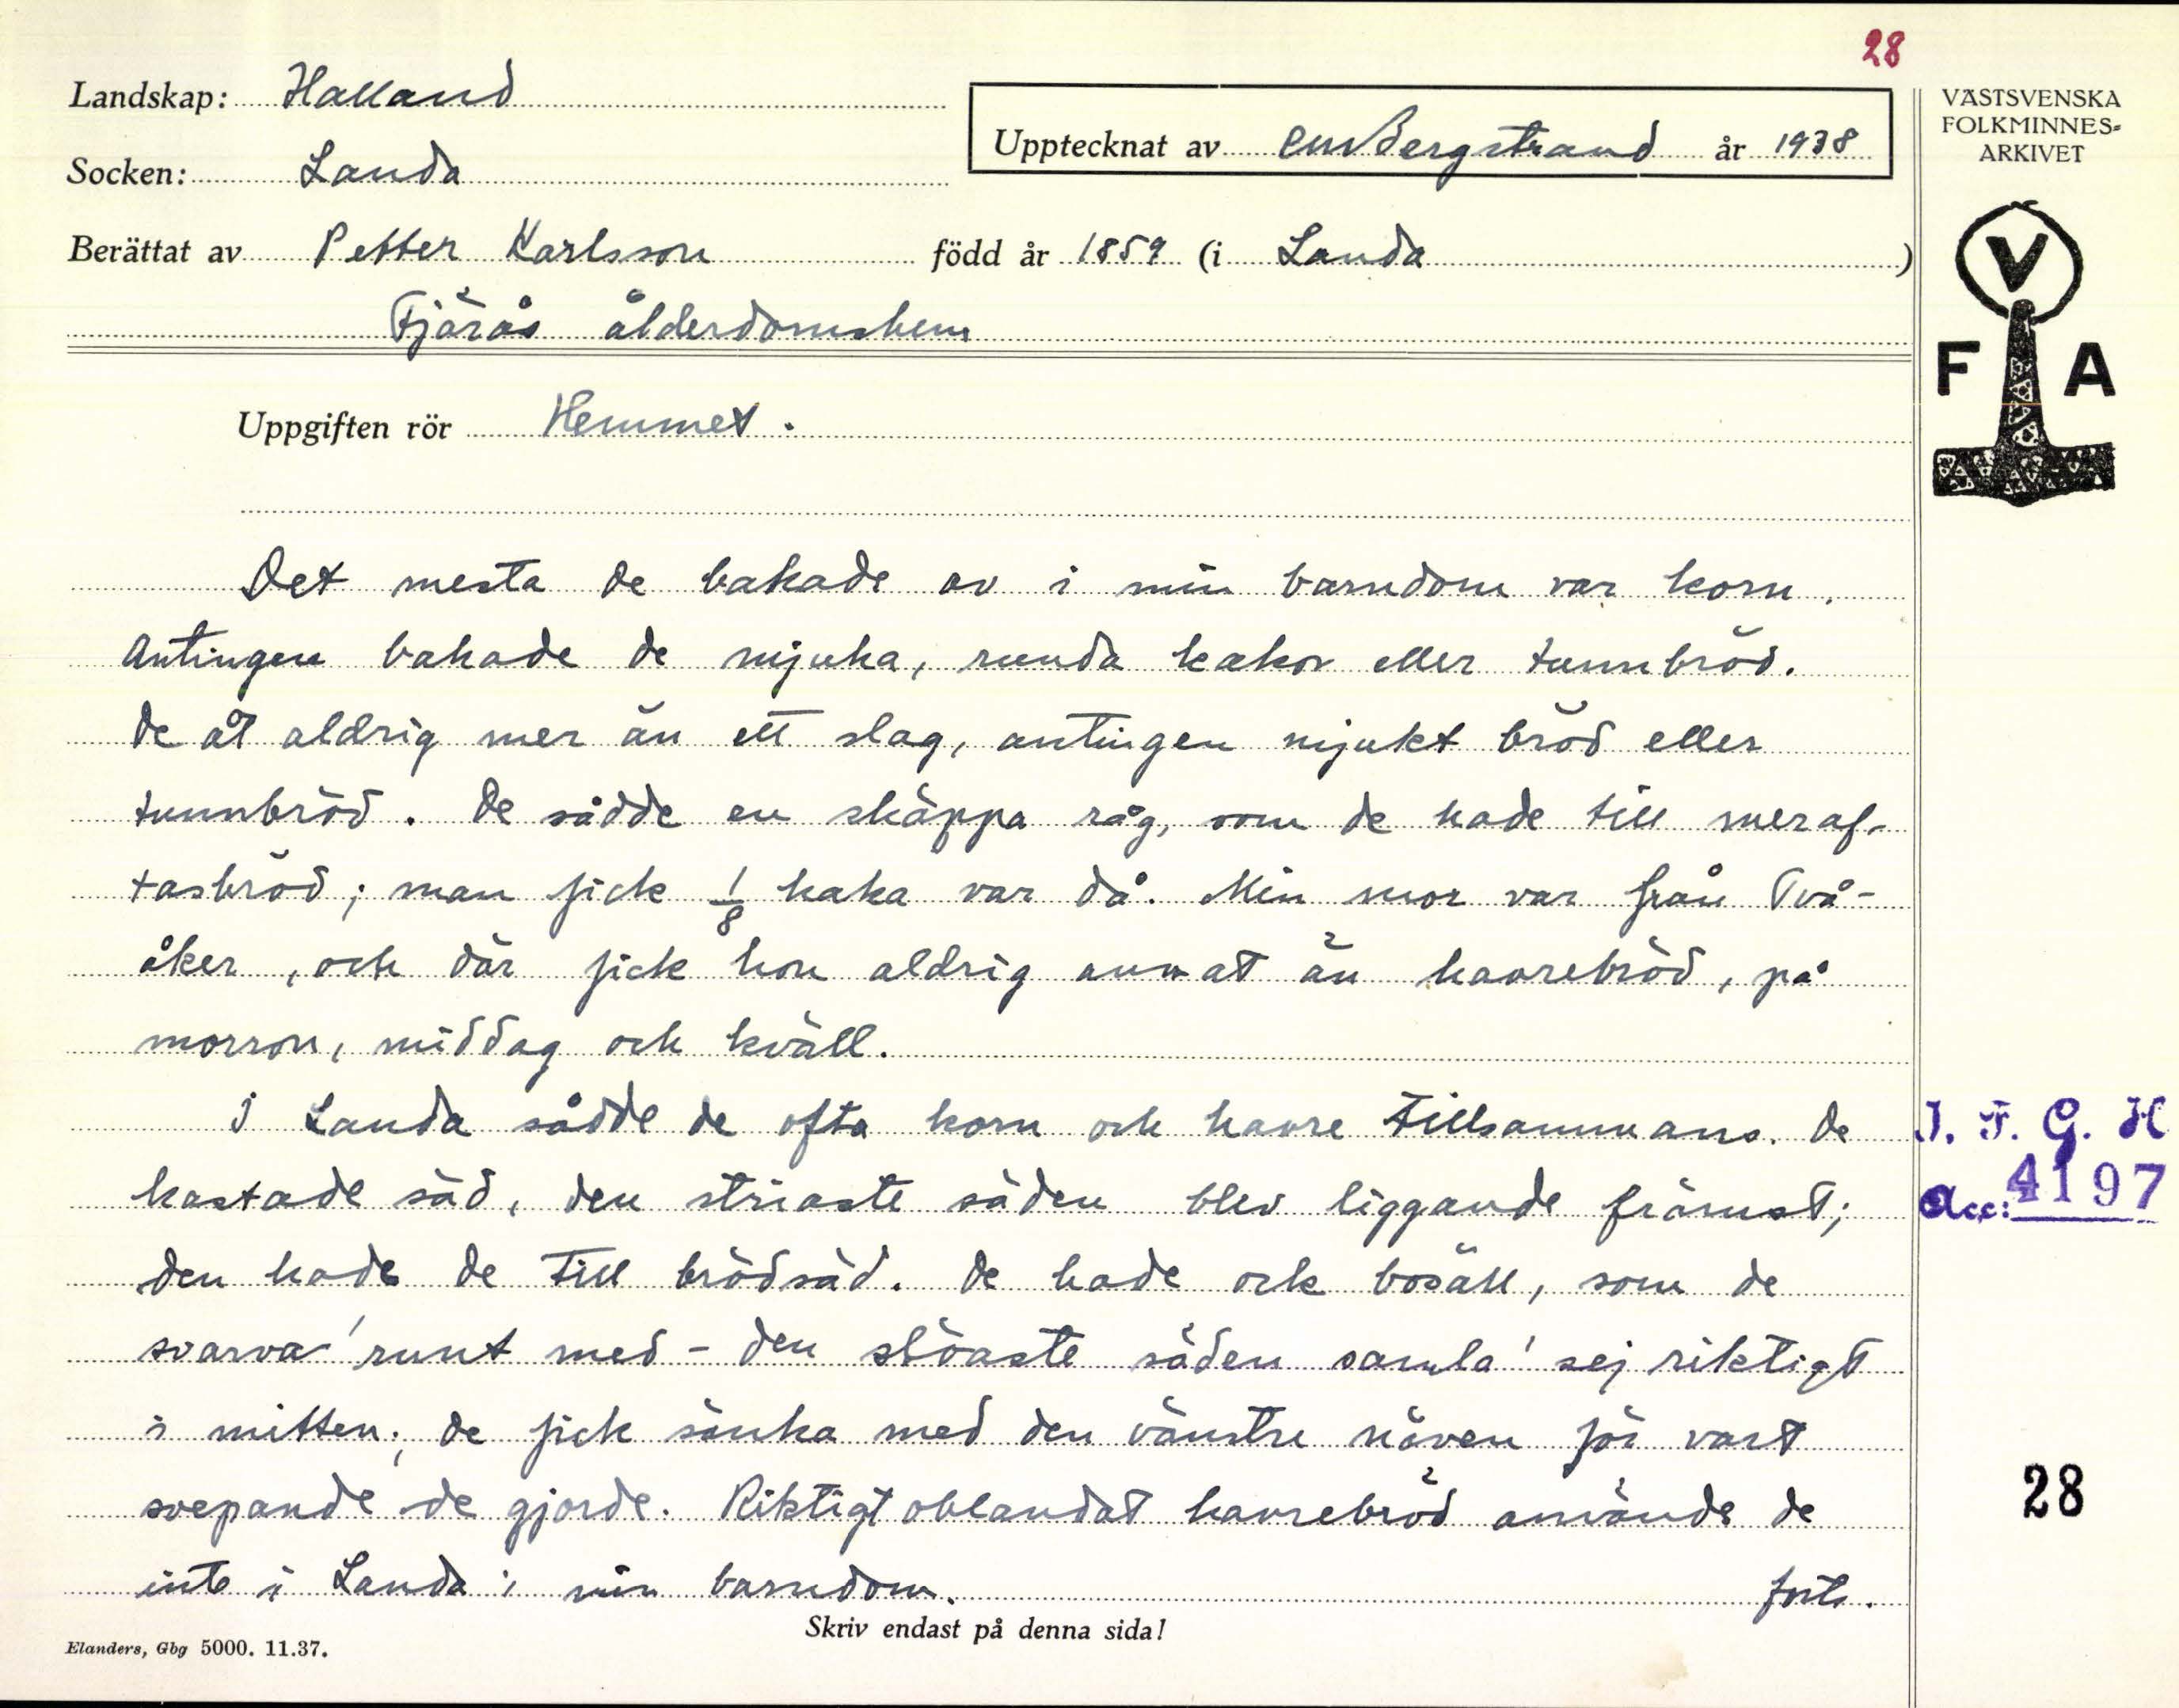 28
Landskap: Halland
Upptecknat av CMBergstrand år 1938
Socken: Landa
Berättat av Petter Karlsson född år 1859 (i Landa)
Fjärås ålderdomshem
Uppgiften rör Hemmet.
Det mesta de bakade av i min barndom var korn.
Antingen bakade de mjuka, runda kakor eller tunnbröd.
De åt aldrig mer än ett slag, antingen mjukt bröd eller
tunnbröd. De sådde en skäppa råg, som de hade till meraf-
tasbröd; man fick 1/8 kaka var då. Min mor var från Två-
åker, och där fick hon aldrig annat än havrebröd, på
morron, middag och kväll.
I Landa sådde de ofta korn och havre tillsammans. De
kastade säd, den striaste säden blev liggande främst;
den hade de till brödsäd. De hade ock bosåll, som de
svarva' runt med - den slöaste säden samla' sej riktigt
i mitten; de fick sänka med den vänstre näven för vart
svepande de gjorde. Riktigt oblandat havrebröd använde de
inte i Landa i min barndom.
forts.
Skriv endast på denna sida!
Elanders, Gbg 5000. 11.37.
VÄSTSVENSKA
FOLKMINNES-
ARKIVET
V
F A
I. F. G. H
Acc: 4197
28